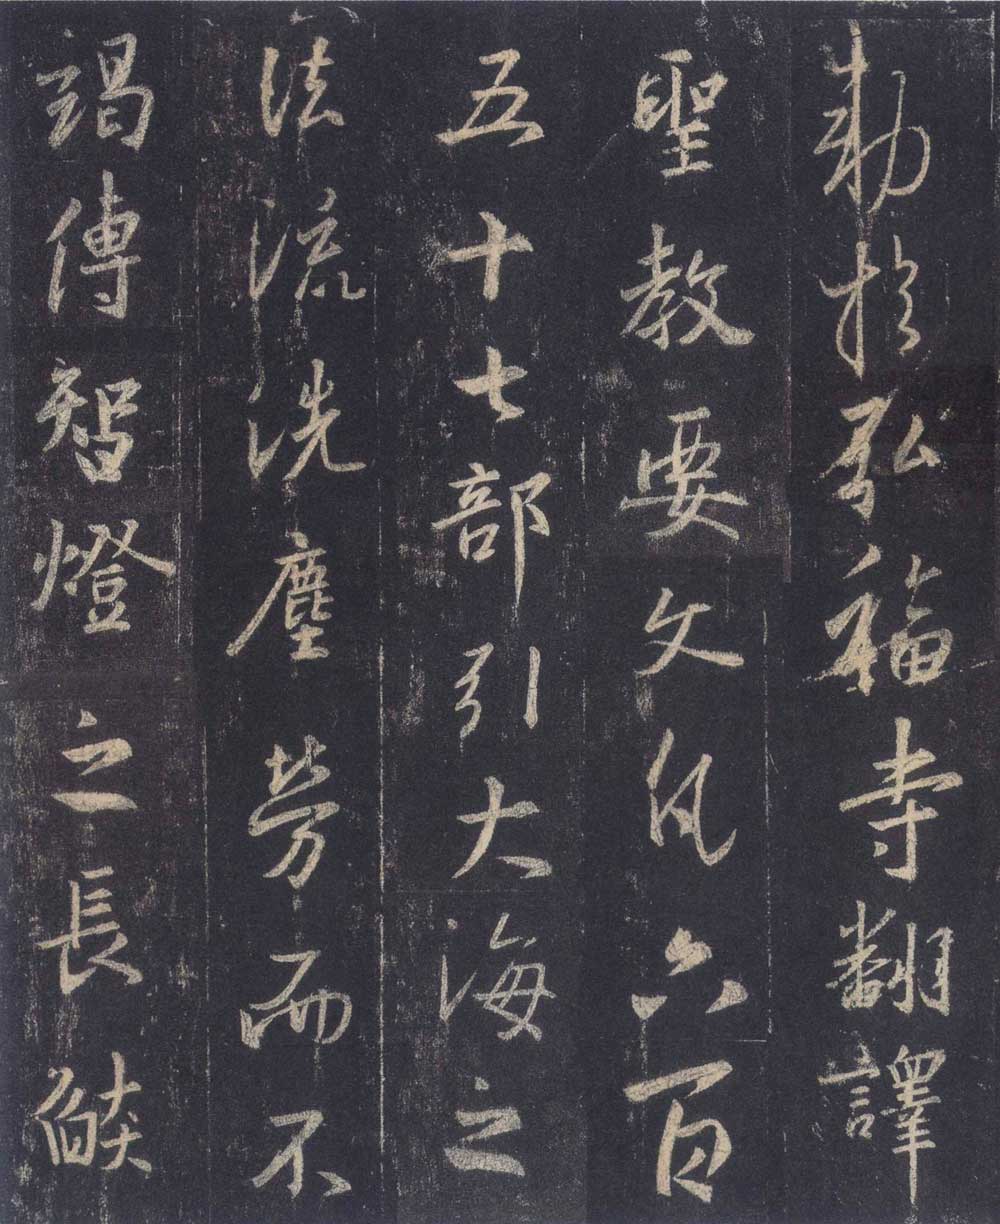 勅於弘福寺翻譯
聖教要文凡六百
五十七部引大海之
法流洗塵勞而不
竭傳智燈之長皎